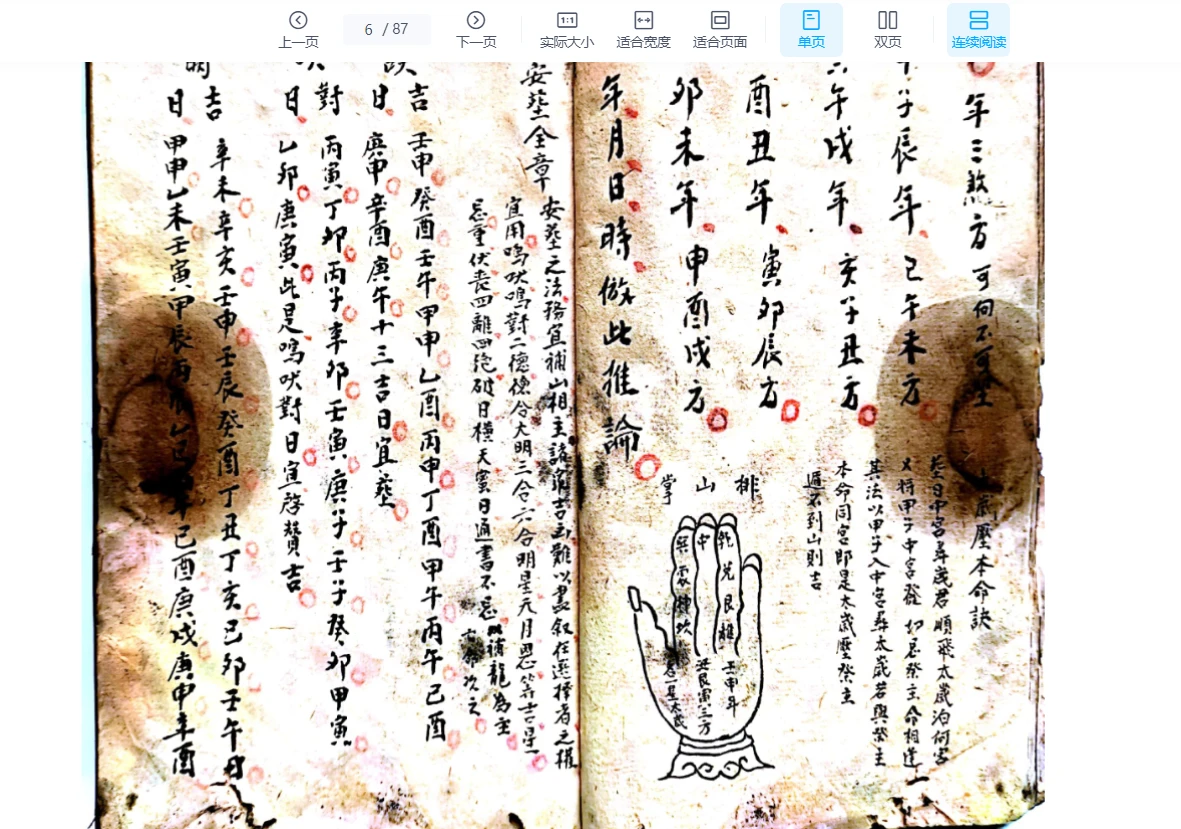 上一页
6 / 87
下一页
实际大小
适合宽度
适合页面
单页
双页
连续阅读
年三煞方 可向不可坐
子辰年 巳午未方
午戌年 亥子丑方
酉丑年 寅卯辰方
卯未年 申酉戌方
年月日時倣此推論
歲壓本命訣
葬日中宮尋歲君順飛太歲泊何宮
将甲子中宮發 切忌祭主命相逢
其法以甲子入中宮尋太歲若與祭主
本命同宮即是太歲壓祭主
遁不到山則吉
排山掌
乾 兑 艮 離
中
巽 震 坤 坎
安塟全章
安塟之法務宜補山相主諸家吉凶難以書叙在選擇者之權
宜用鳴吠鳴對二德德合大明三合六合明星天月恩等吉星
忌重伏喪四離四絶破日橫天
日通書不忌
補龍為主
次之
吉 壬申癸酉壬午甲申乙酉丙申丁酉甲午丙午己酉
日 庚申辛酉庚午十三吉日宜塟
對 丙寅丁卯丙子辛卯壬寅庚子壬子癸卯甲寅
日 乙卯庚寅此是鳴吠對日宜啓攢吉
吉 辛未辛亥壬申壬辰癸酉丁丑丁亥己卯壬午
日 甲申乙未壬寅甲辰丙
己酉庚戌庚申辛酉